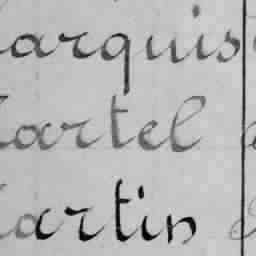 arquis
artel
artin